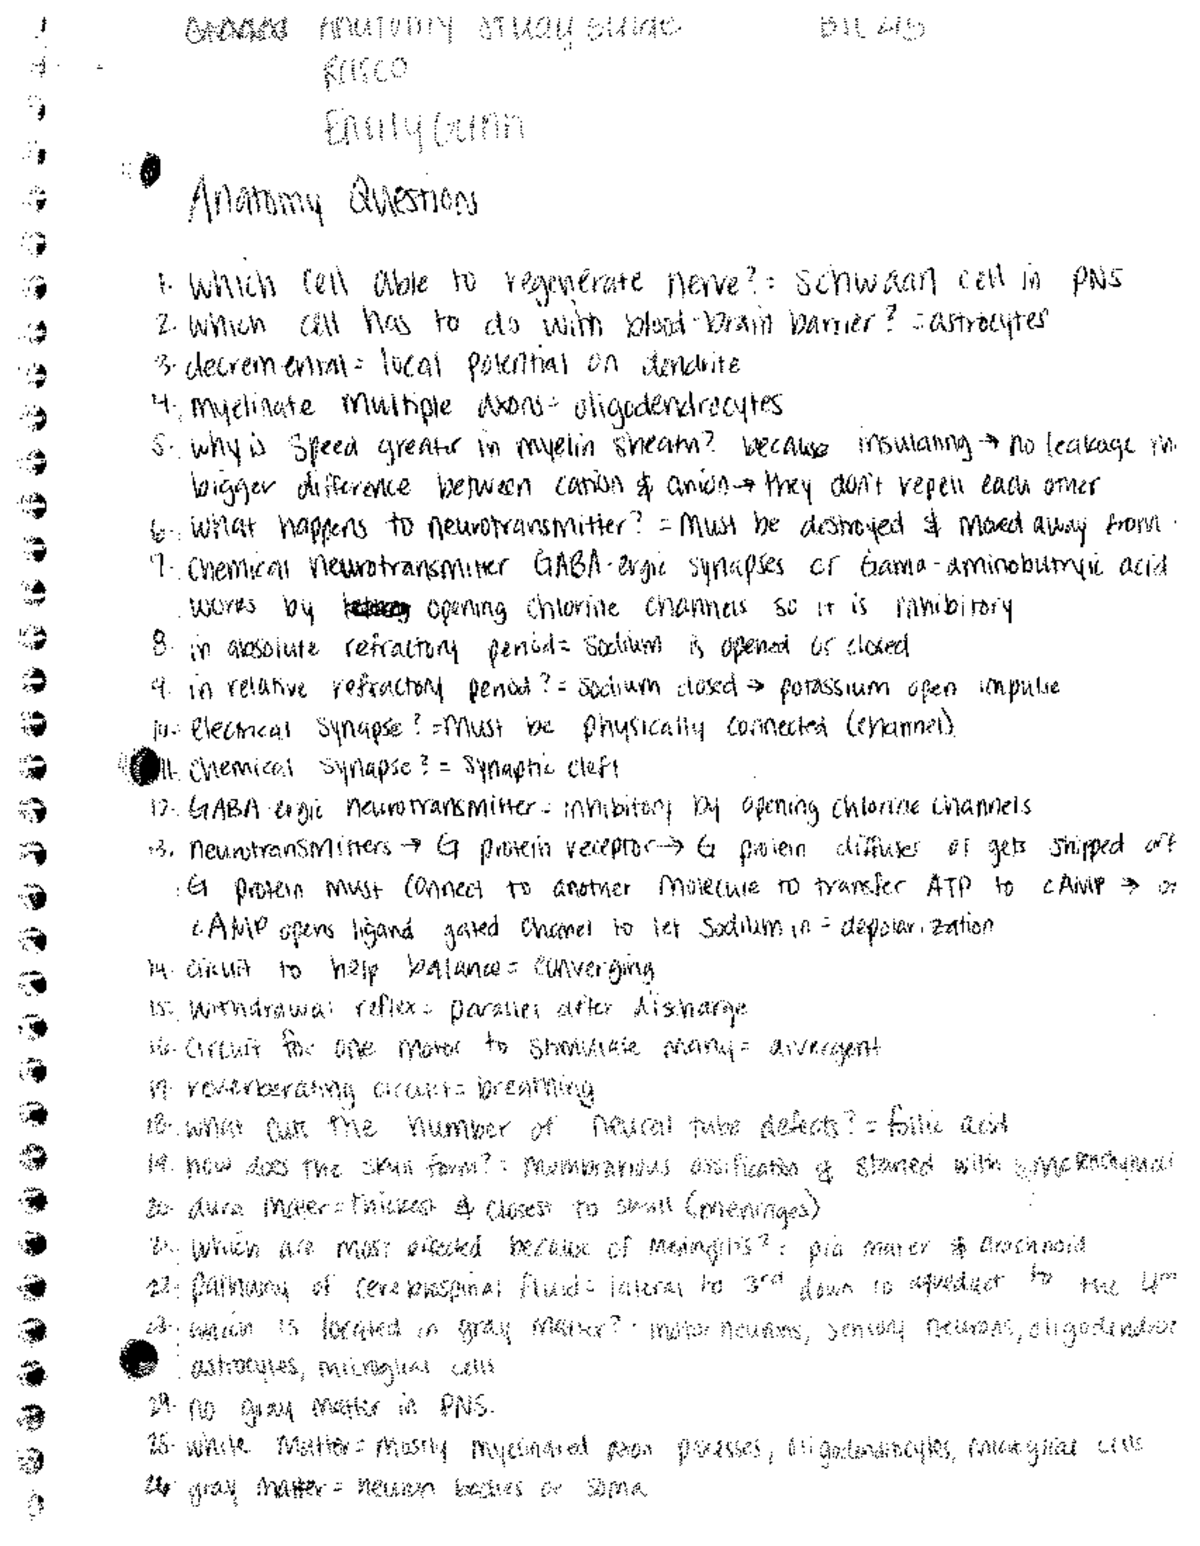 Anatomy Study Guide
Emily
Anatomy Questions
1. Which cell able to regenerate nerve? = Schwaan cell in PNS
2. Which cell has to do with blood-brain barrier? = astrocytes
3. decremental = local potential on dendrite
4. myelinate multiple axons = oligodendrocytes
5. why is speed greater in myelin sheath? because insulating → no leakage
bigger difference between cation & anion → they don't repell each other
6. What happens to neurotransmitter? = Must be destroyed & moved away from
7. Chemical neurotransmitter GABA-ergic synapses or Gama-aminobutryic acid
works by opening chlorine channels so it is inhibitory
8. in absolute refractory period = sodium is opened or closed
9. in relative refractory period? = sodium closed → potassium open impulse
10. electrical synapse? = Must be physically connected (channel)
11. Chemical synapse? = synaptic cleft
12. GABA-ergic neurotransmitter = inhibitory by opening chlorine channels
13. neurotransmitters → G protein receptor → G protein diffuses or gets shipped off
G protein must connect to another molecule to transfer ATP to cAMP →
cAMP opens ligand gated channel to let sodium in = depolarization
14. circuit to help balance = converging
15. withdrawal reflex = parallel after discharge
16. circuit for one motor to stimulate many = divergent
17. reverberating circuit = breathing
18. what cuts the number of neural tube defects? = follic acid
19. how does the skull form? = ossification & started with
20. dura mater = thickest & closest to skull (meninges)
21. Which are most affected because of meningitis? = pia mater & arachnoid
22. pathway of cerebrospinal fluid = lateral to 3rd down to aqueduct to the 4th
23. which is located in gray matter? = motor neurons, sensory neurons,
astrocytes, microglial cells
24. no gray matter in PNS.
25. white matter = mostly myelinated axon processes, oligodendrocytes, microglial cells
26. gray matter = neuron bodies or soma